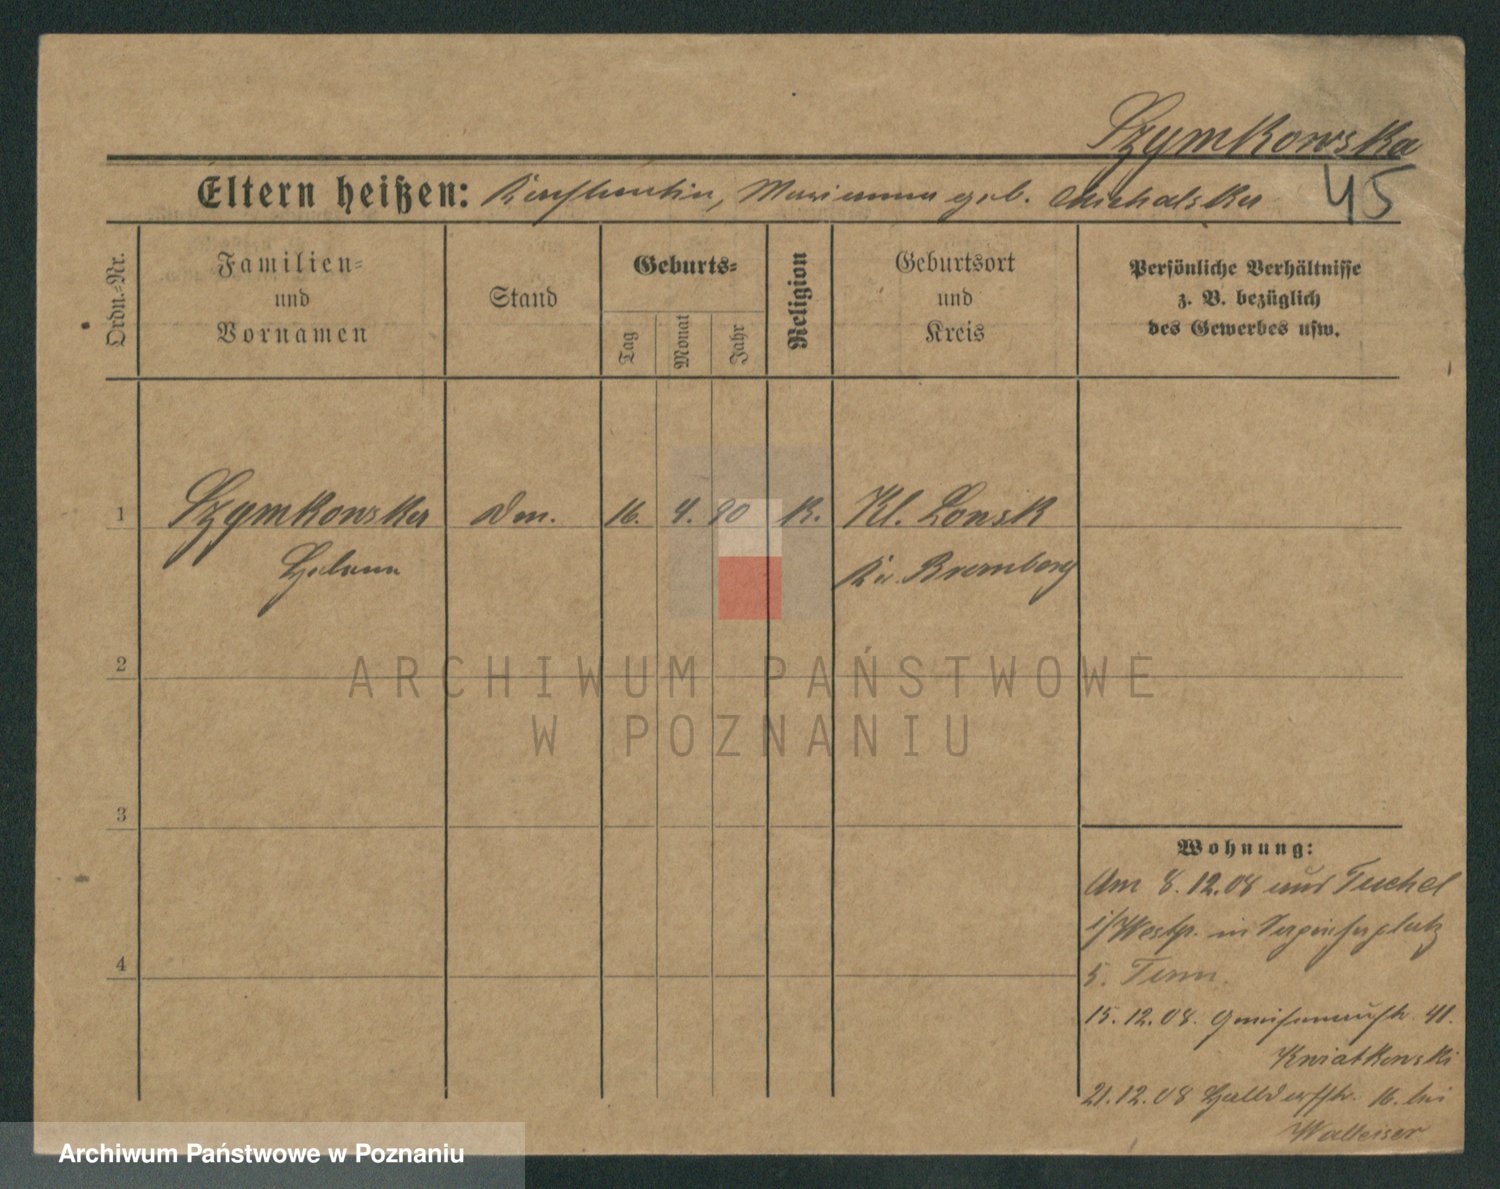 Szymkowska
45
Eltern heißen: Konstantin, Marianna geb. Michalska
Ordn.-Nr.
Familien- und Vornamen
Stand
Geburts-
Tag
Monat
Jahr
Religion
Geburtsort und Kreis
Persönliche Verhältnisse z. B. bezüglich des Gewerbes usw.
1 Szymkowska 16. 4. 90 K. Kl. Lonsk
Helena Kr. Bromberg
2
3
4
Wohnung:
Am 8.12.08 aus Tuchel
i/Westp. in
5.
15.12.08. Gneisenaustr. 41.
Kwiatkowski
21.12.08 Halldorfstr. 16. bei
ARCHIWUM PAŃSTWOWE
W POZNANIU
Archiwum Państwowe w Poznaniu